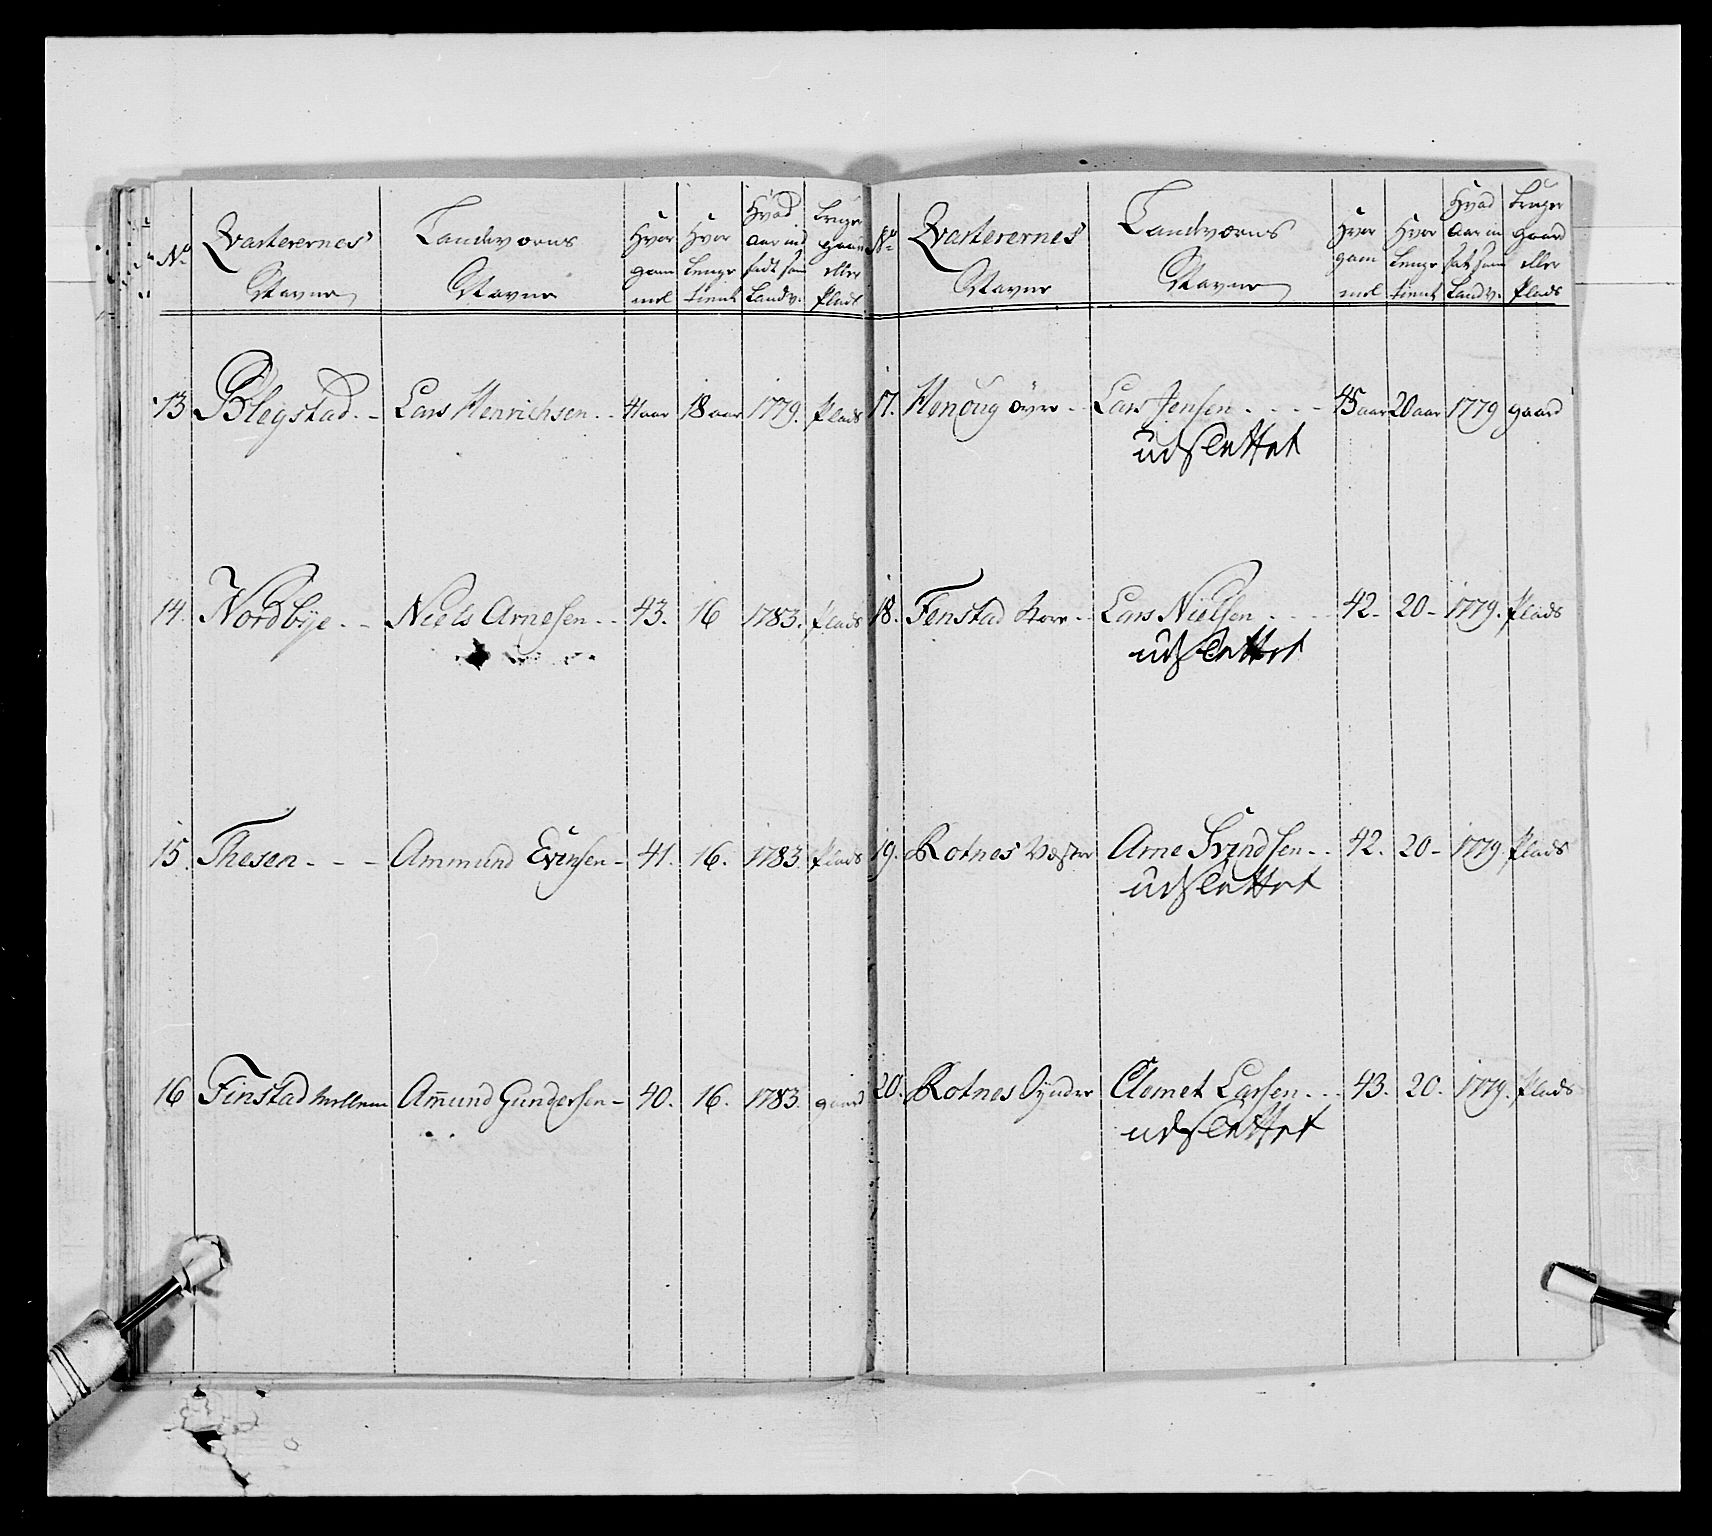 No Qvarterernes Navne Landværns Navne Hvor gammel Hvor lenge tient Hvad Aar indsadt som Landv. bruger gaard eller Plads
13 Blegstad Lars Henrichsen 41 aar 18 aar 1779. Plads
14. Nordbye Niels Arnesen 43. 16 1783. Plads
15. Thesen Ammund Evensen 41. 16. 1783 Plads
16 Finstad Mellem Am̄und Gundersen 40. 16. 1783. gaard
No Qvarterernes Navne Landværns Navne Hvor gammel Hvor lenge tient Hvad Aar in sat som Landv. bruger gaard eller Plads
17. Honoug øvre Lars Jensen 45 aar 20 aar 1779 gaard
udslettet
18. Fenstad Store Lars Nielsen 42. 20 1779. Plads
udslettet
19. Rotnes Vestre Arne Svendsen 42. 20 1779 Plads
udslettet
20. Rotnes Synder Clemet Larsen 43. 20. 1779. Plads
udslettet